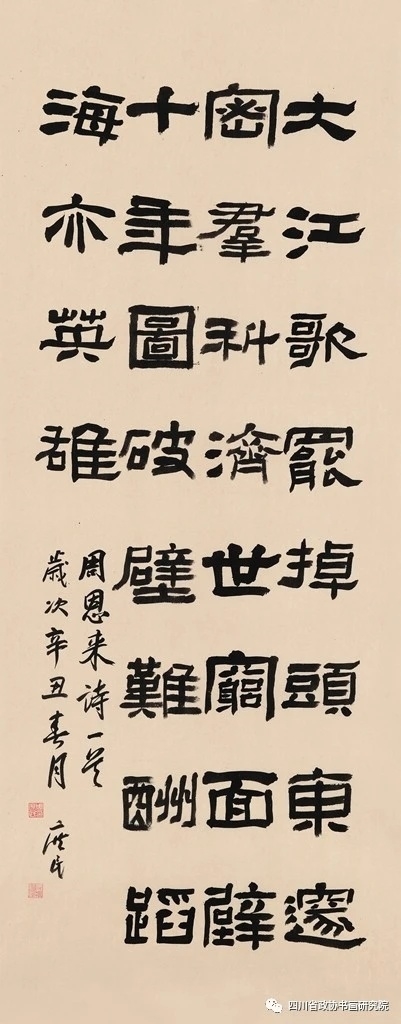 大江歌罷掉頭東邃
密羣科濟世窮面壁
十年圖破壁難酬蹈
海亦英雄
周恩来诗一首
歲次辛丑春月
四川省政协书画研究院